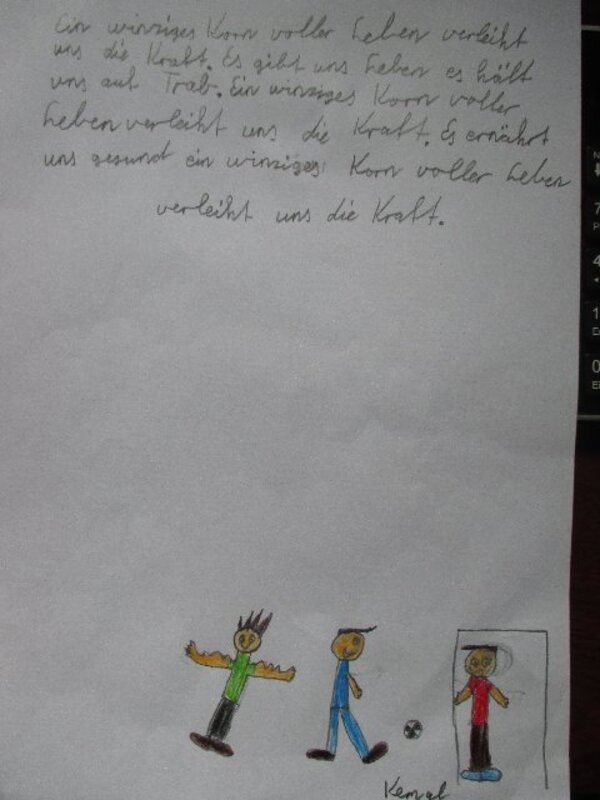 Ein winziges Korn voller Leben verleiht
uns die Kraft. Es gibt uns Leben es hält
uns auf Trab. Ein winziges Korn voller
Leben verleiht uns die Kraft. Es ernährt
uns gesund ein winziges Korn voller Leben
verleiht uns die Kraft.
Kemal